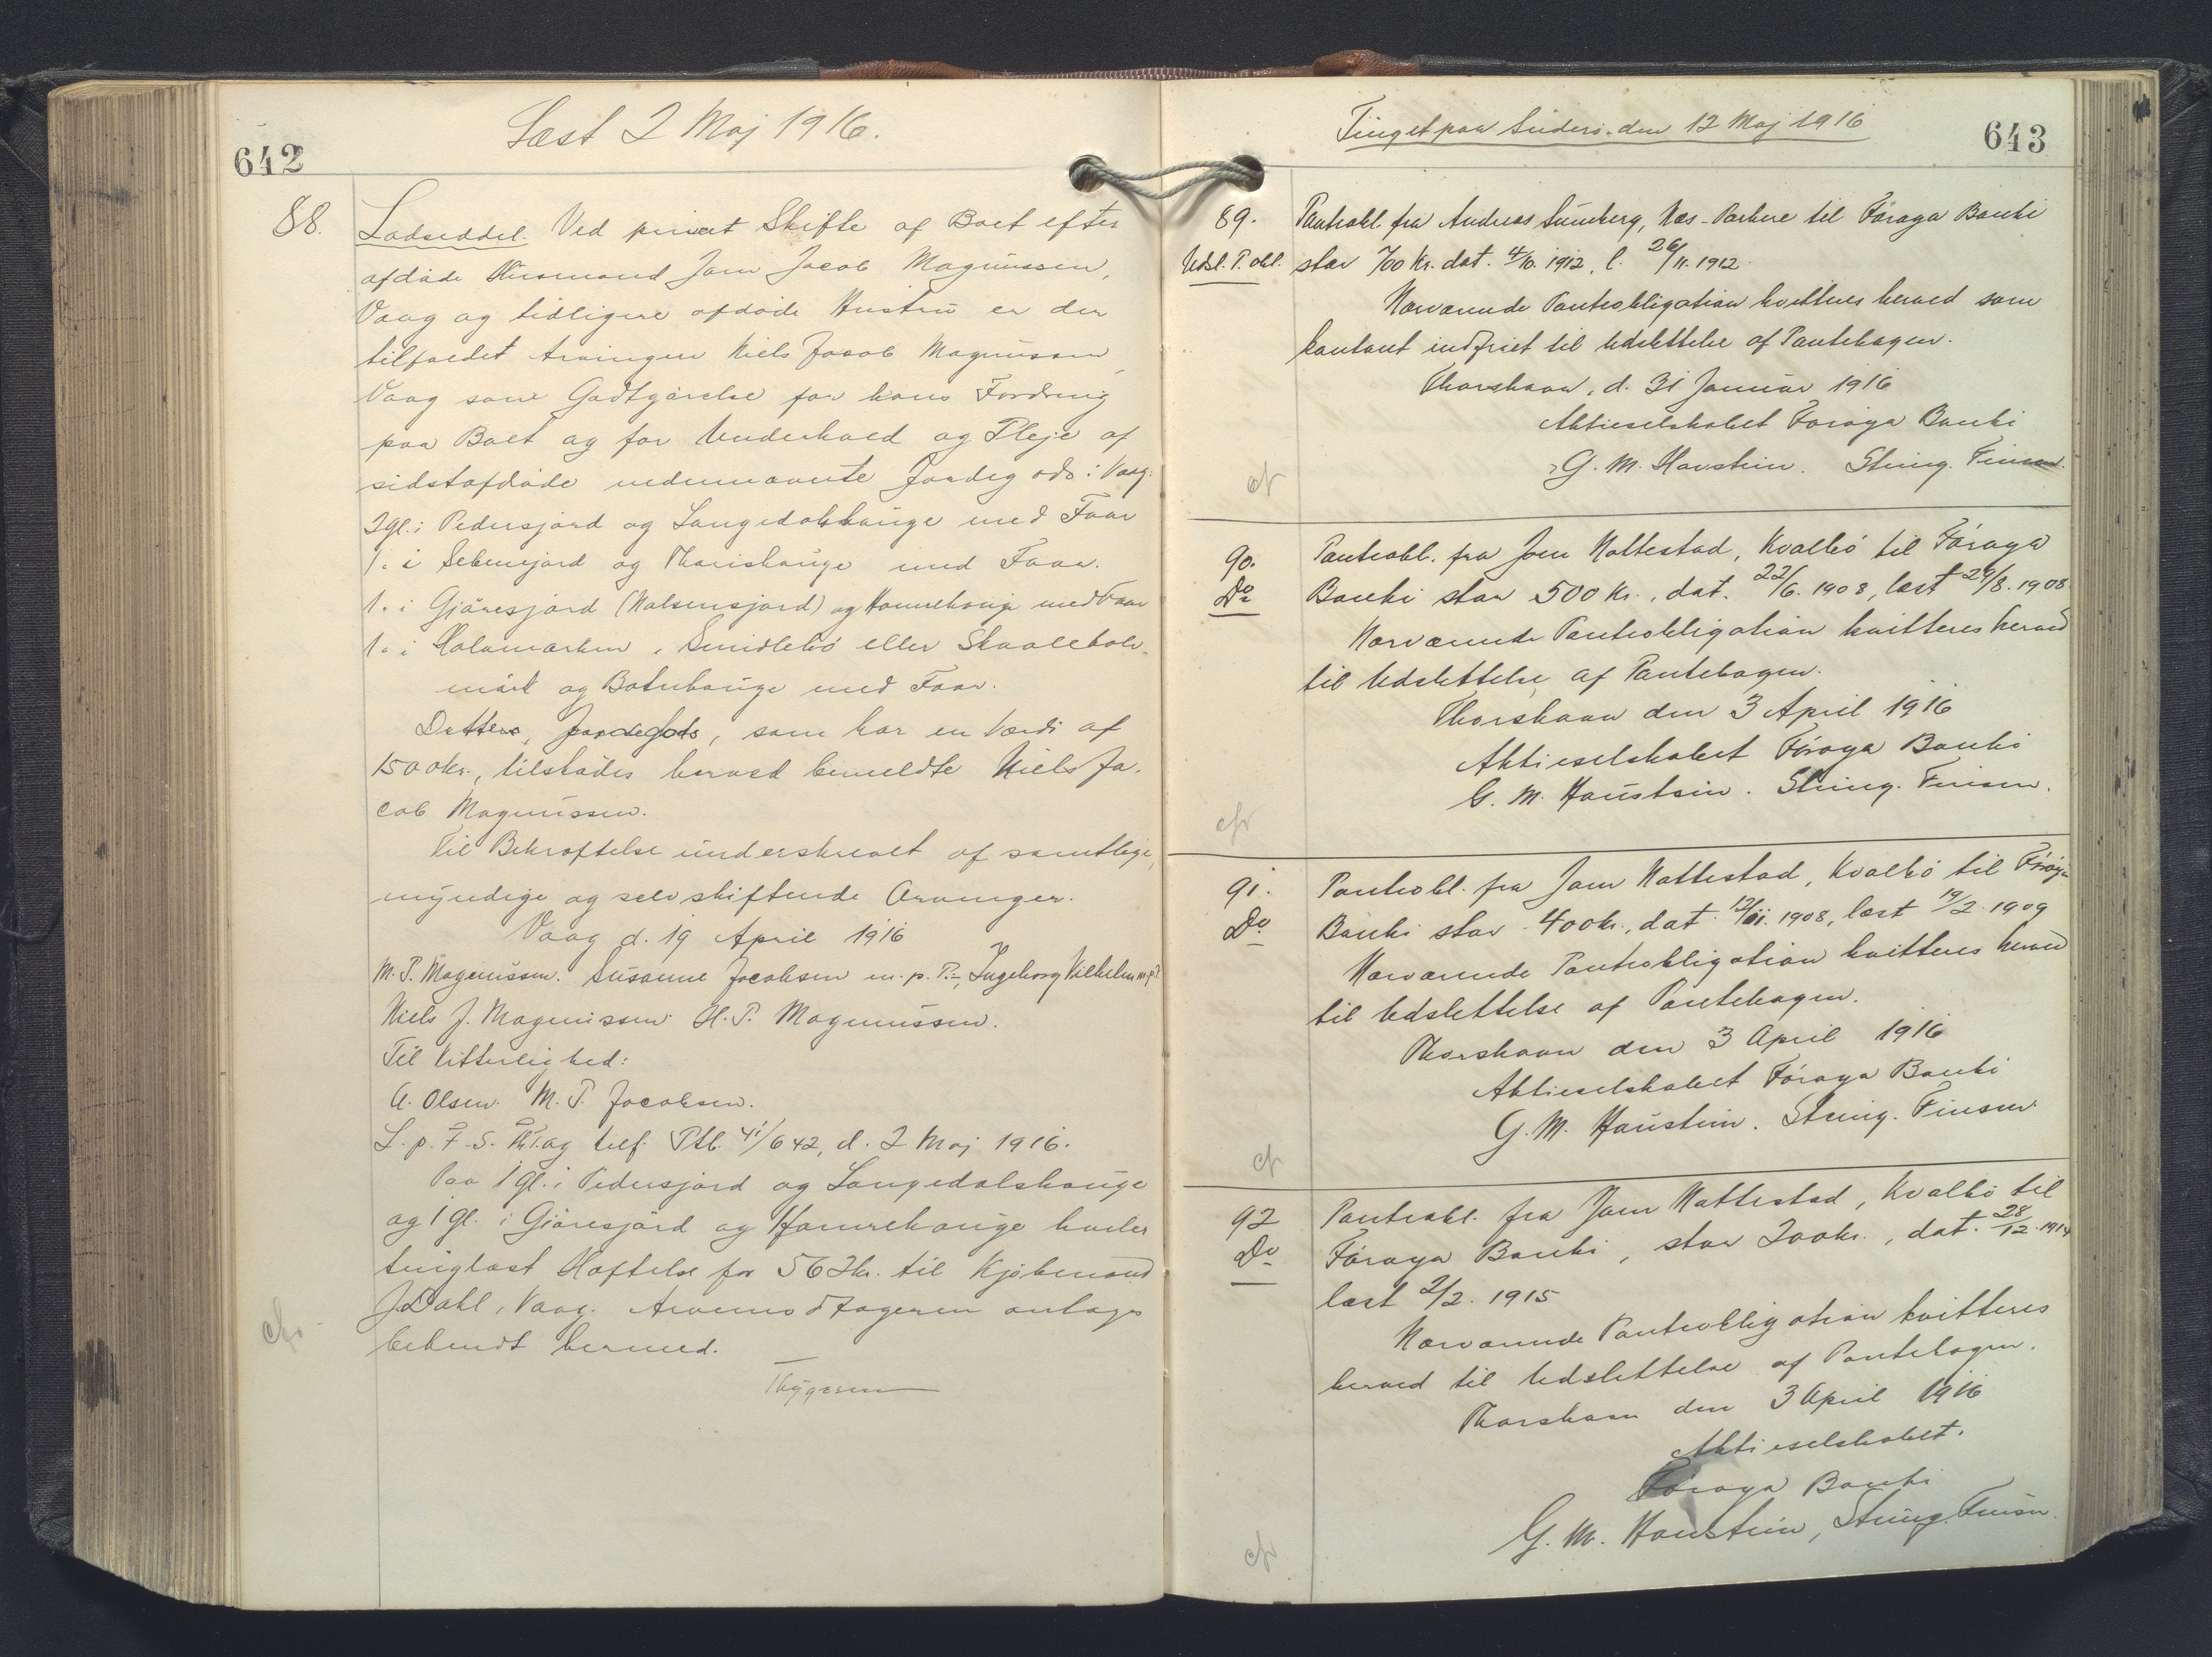 642
Læst 2 Maj 1916.
88.
Lodseddel. Ved privat Skifte af Boet efter
afdøde Husmand Joen Jacob Magnussen,
Vaag og tidligere afdøde Hustru er der
tilfaldet Arvingen Niels Jacob Magnussen,
Vaag som Godtgørelse for hans Fordring
paa Boet og for Underhold og Pleje af
sidstafdøde nedennævnte Jordeg ods i Vaag:
2 gl. i Pedersjørd og Langedalshauge med Faar
1 " i Sebensjørd og Thorishauge med Faar.
1 " i Gjøresjørd (Halsensjord) og Hamrehauge med Faar
1 " i Holamarken, Smidlebø eller Skaalehols-
mørk og Botnhauge med Faar.
Dettere Jordegods, som har en Værdi af
1500 kr., tilskødes herved bemeldte Niels Ja-
cob Magnussen.
Til Bekræftelse underskrevet af samtlige,
myndige og selvskiftende Arvinger.
Vaag d. 19 April 1916
M. P. Magnussen. Susanne Jacobsen m. p. P., Ingeborg Vilhelm m. p. P.
Niels J. Magnussen H. P. Magnussen.
Til Vitterlighed:
A. Olsen. M. P. Jacobsen.
L. p. F. S. Th. T. og tilf. Ptb. 41/642, d. 2 Maj 1916.
Paa 1 gl. i Pedersjørd og Langedalshauge
og 1 gl. i Gjøresjørd og Hamrehauge hviler
tinglæst Hæftelse for 562 kr. til Kjøbmand
J. Dahl, Vaag. Arvemodtageren antages
bekendt hermed.
Thygesen
cfr.
Tinget paa Suderø den 12 Maj 1916
643
89.
Udsl. P. obl.
Panteobl. fra Andreas Sumberg, Næs-Porkere til Føroya Banki
stor 700 Kr. dat. 4/10. 1912, l. 26/11. 1912.
Nærværende Panteobligation kvitteres herved som
kontant indfriet til Udslettelse af Pantebogen.
Thorshavn, d. 31 Januar 1916
Aktieselskabet Føroya Banki
G. M. Havstein. String. Finsen.
cfr
90.
Do
Panteobl. fra Joen Nattestad, Kvalbø til Føroya
Banki stor 500 Kr., dat. 22/6. 1908, læst 29/8. 1908
Nærværende Panteobligation kvitteres herved
til Udslettelse af Pantebogen.
Thorshavn den 3 April 1916
Aktieselskabet Føroya Banki
G. M. Haustein. String. Finsen.
cfr
91.
Do
Panteobl. fra Joen Nattestad, Kvalbø til Føroya
Banki stor 400 kr., dat. 12/11. 1908, læst 19/2. 1909
Nærværende Panteobligation kvitteres herved
til Udslettelse af Pantebogen.
Thorshavn den 3 April 1916
Aktieselskabet Føroya Banki
G. M. Haustein. String. Finsen
cfr
92
Do
Panteobl. fra Joen Nattestad, Kvalbø til
Føroya Banki, stor 200 kr., dat. 28/12. 1914
læst 2/2. 1915
Nærværende Panteobligation kvitteres
herved til Udslettelse af Pantebogen.
Thorshavn den 3 April 1916
Aktieselskabet.
Føroya Banki
G. M. Haustein, String. Finsen.
cfr